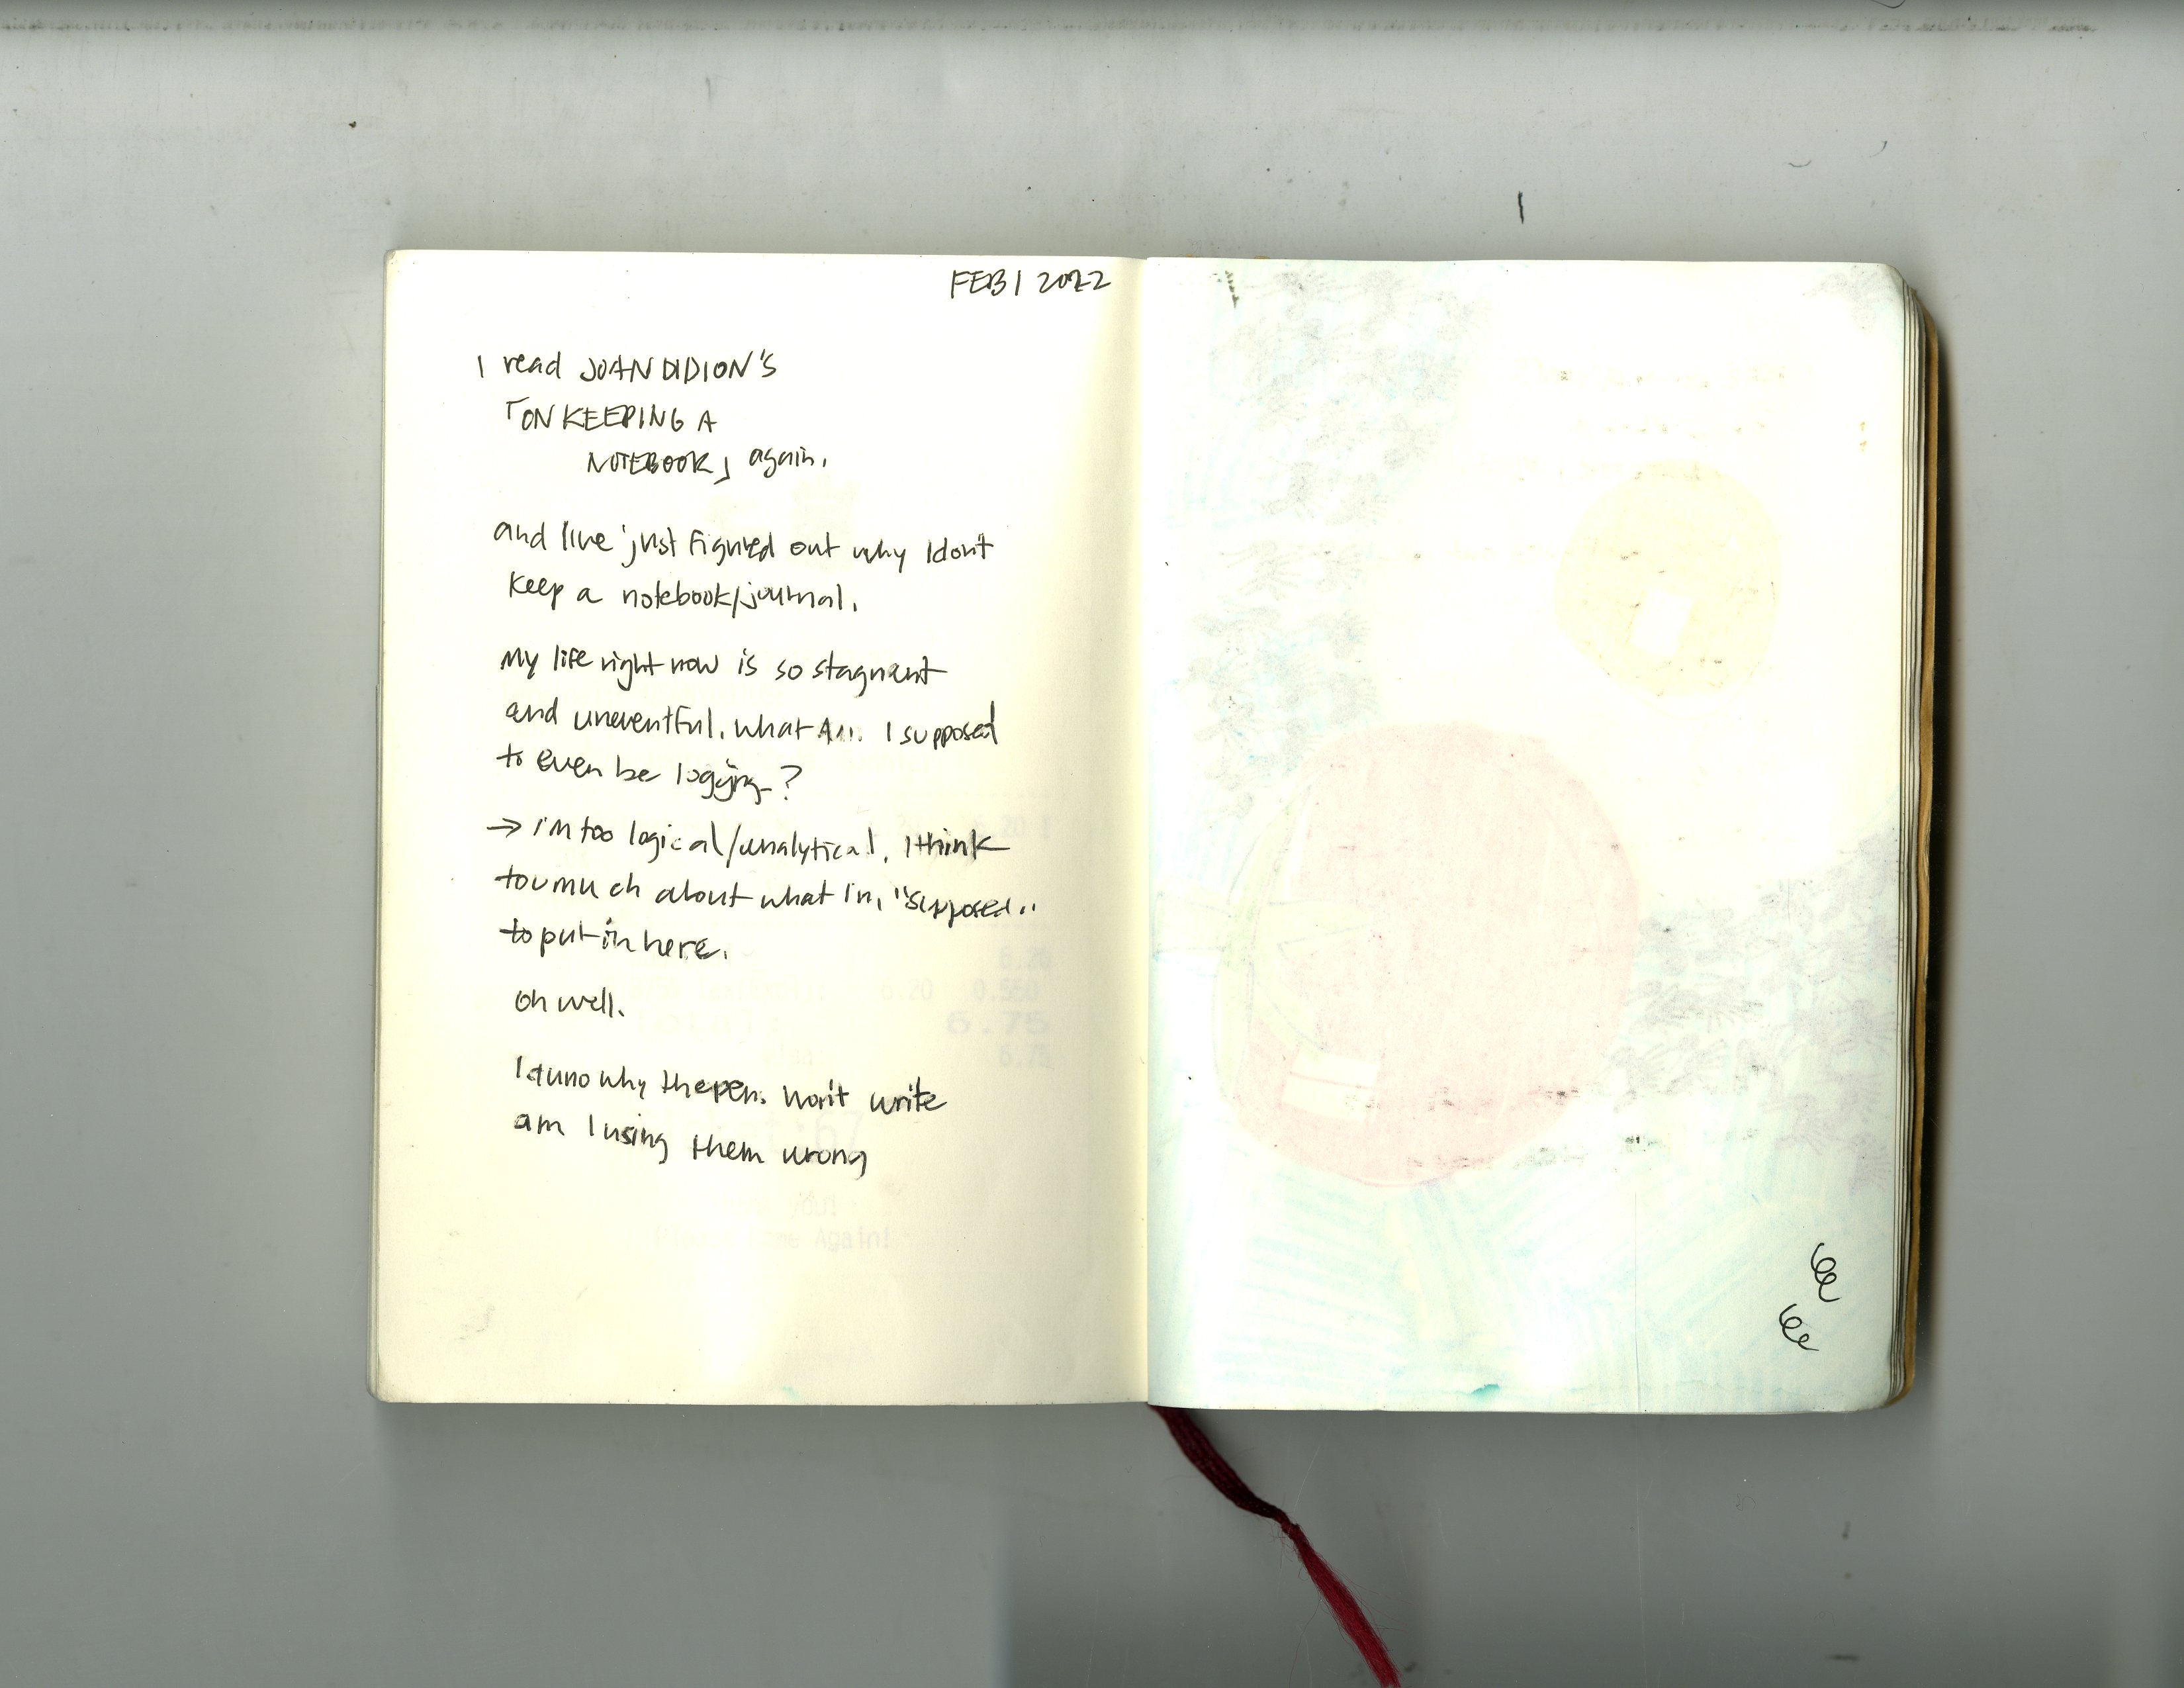 FEB 1 2022
I read JOAN DIDION'S
「ON KEEPING A
NOTEBOOK」 again.
and I've just figured out why I don't
keep a notebook/journal.
My life right now is so stagnant
and uneventful. what Am I supposed
to even be logging?
→ i'm too logical/analytical. I think
too much about what I'm "supposed"
to put in here.
oh well.
I duno why the pen won't write
am I using them wrong
6.20
6.20 0.550
6.75
6.75
you!
me Again!